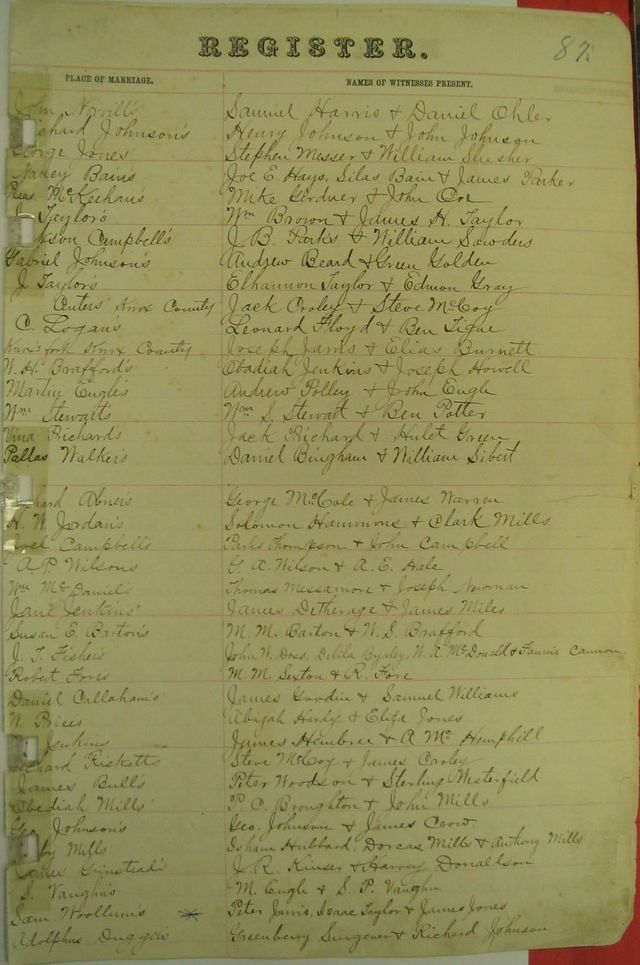 87
REGISTER.
PLACE OF MARRIAGE. NAMES OF WITNESSES PRESENT.
John Norvill's Samuel Harris & Daniel Ohler
Richard Johnson's Henry Johnson & John Johnson
George Jones' Stephen Messer & William Slusher
Nancy Bains Joe E. Hays, Silas Bain & James Parker
McKeehan's Mike Gerdner & John Orr
Taylor's Wm Brown & James H. Taylor
Campbell's J. B. Parks & William Sowders
Gabriel Johnson's Andrew Beard & Green Golden
J. Taylors Elhannon Taylor & Edmon Gray
Centers' Knox County Jack Croley & Steve McCoy
C. Logan's Leonard Floyd & Ben Tigue
Knox County Joseph Jarvis & Elias Burnett
W. H. Brafford's Obadiah Jenkins & Joseph Howell
Martin Engle's Andrew Polley & John Engle
Wm Stewarts Wm S. Stewart & Ben Potter
Vina Richard's Jack Richard & Hulet Green
Pallas Walker's Daniel Bingham & William Sibert
Abner's George McCole & James Warren
H. W. Jordan's Solomon Hammons & Clark Mills
Joel Campbell's Parks Thompson & John Campbell
A. P. Wilson's G. A. Wilson & A. E. Hale
Wm McDaniel's Thomas Messamore & Joseph Newman
Jane Jenkins' James Detherage & James Miles
Susan E. Barton's M. M. Barton & W. S. Brafford
J. T. Fisher's John W. Doss, Delila Byrley, W. A. McDonald & Fannie Cannon
Robert Fores M. M. Sexton & R. Fore
Daniel Callaham's James Goodin & Samuel Williams
W. Prices Abijah Hardy & Eliza Jones
Jenkins James Hembree & A Mc Hemphill
Richard Ricketts Steve McCoy & James Croley
James Bull's Peter Woodson & Sterling Westerfield
Obediah Mills P. C. Broughton & John Mills
Geo Johnson's Geo. Johnson & James Crow
Mills' Isham Hubbard, Dorcas Mills & Anthony Mills
James Grinstead's J. R. Kinser & Harvey Donaldson
S. Vaughn's M. Engle & S. P. Vaughn
Sam Woollums Peter Jarvis, Isaac Taylor & James Jones
Adolphus Dugger Greenberry Surgener & Richard Johnson